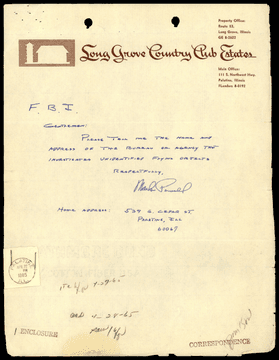 Property Office:
Route 53,
Long Grove, Illinois
GE 8-5627
Long Grove Country Club Estates
Main Office:
111 S. Northwest Hwy.
Palatine, Illinois
FLanders 8-0192
F B I
Gentlemen:
Please tell me the name and
address of the Bureau or agency the
investigates unidentified flying objects
Respectfully,
Home address: 539 S. Cedar St
Palatine, Ill
60067
4-29-65
4-28-65
ENCLOSURE
CORRESPONDENCE